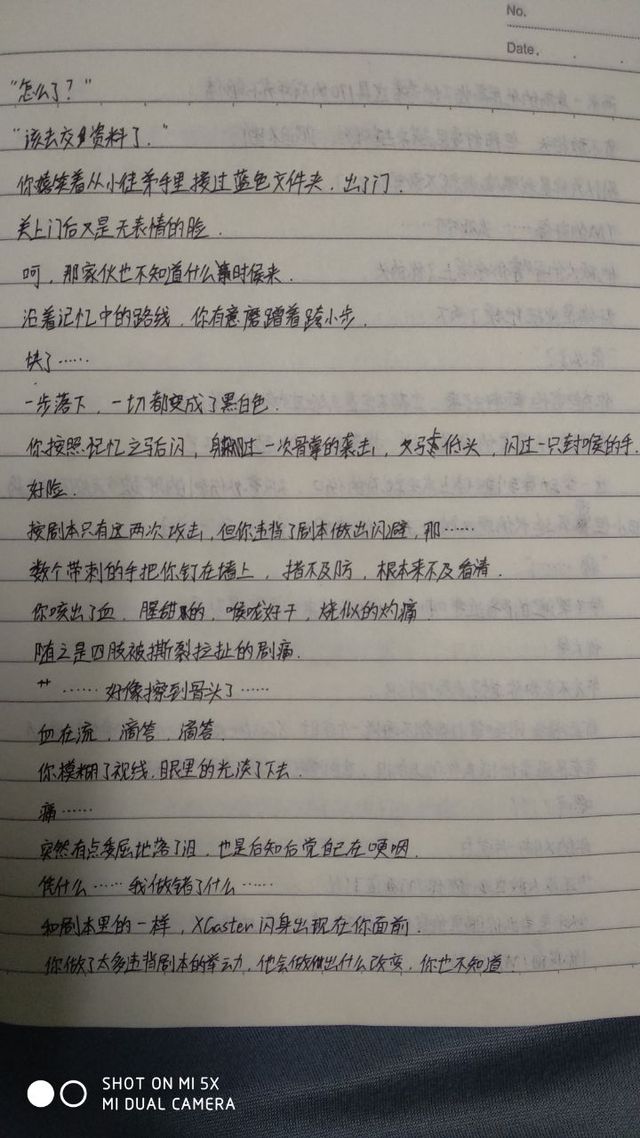 No.
Date.
“怎么了？”
“该去交资料了.”
你嬉笑着从小佳弟手里接过蓝色文件夹，出了门.
关上门后又是无表情的脸.
呵，那家伙也不知道什么时候来.
沿着记忆中的路线，你有意磨蹭着跨小步.
快了……
一步落下，一切都变成了黑白色.
你按照记忆立马后闪，躲过一次骨掌的袭击，又马上低头，闪过一只封喉的手.
好险.
按剧本只有这两次攻击，但你违背了剧本做出闪避，那……
数个带刺的手把你钉在墙上，措不及防，根本来不及看清.
你咳出了血，腥甜的，喉咙好干，烧似的灼痛.
随之是四肢被撕裂拉扯的剧痛.
艹……好像擦到骨头了……
血在流，滴答，滴答.
你模糊了视线，眼里的光淡了下去.
痛……
突然有点委屈地落了泪，也是后知后觉自己在哽咽.
凭什么……我做错了什么……
和剧本里的一样，XGaster闪身出现在你面前.
你做了太多违背剧本的举动，他会做出什么改变，你也不知道.
SHOT ON MI 5X
MI DUAL CAMERA